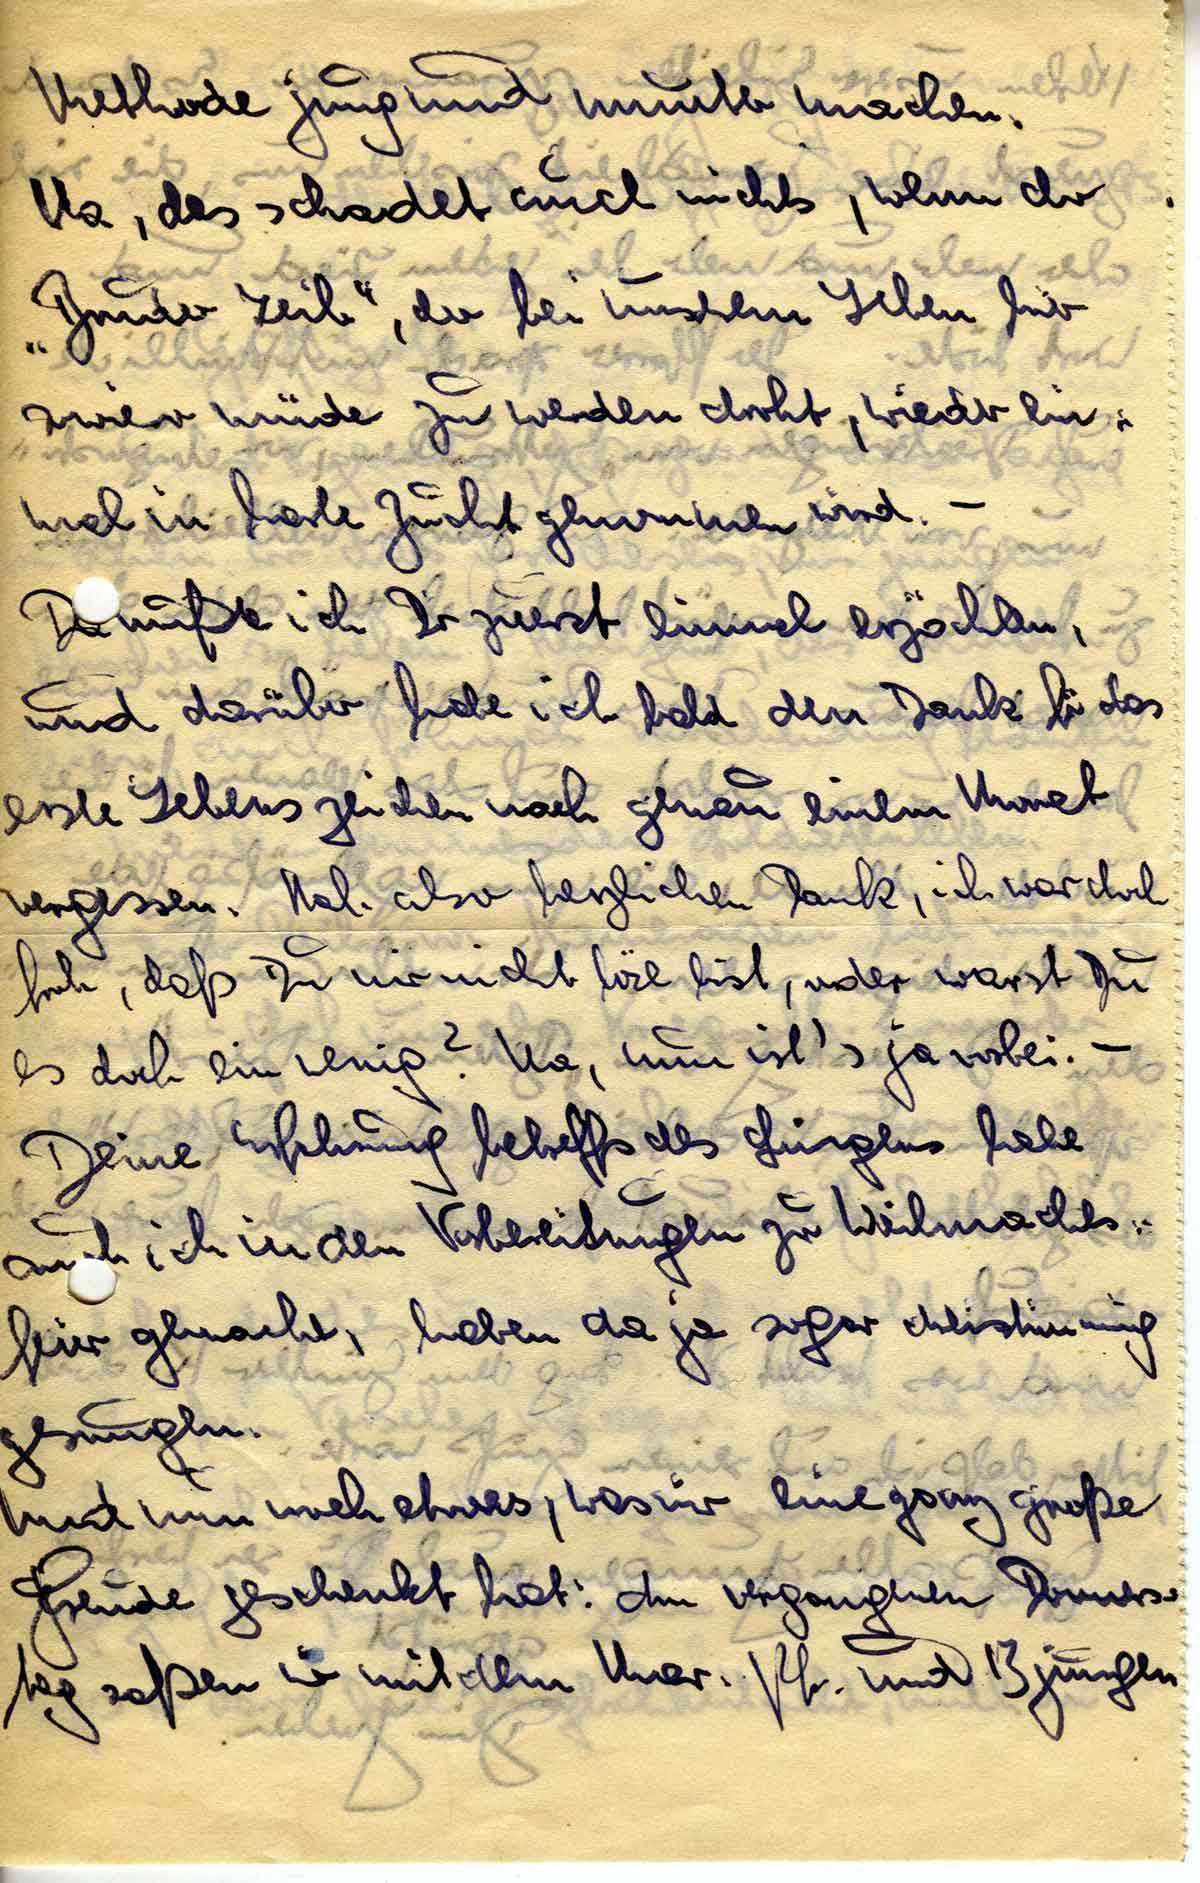 Methode jung und munter machen.
Na, das schadet auch nichts, wenn der
„Bruder Leib“, der bei unserem Leben hier
müde zu werden droht, wieder ein=
mal in harte Zucht genommen wird. –
Da mußte ich Dir zuerst einmal erzählen,
und darüber habe ich bald den Dank für das
erste Lebenszeichen nach genau einem Monat
vergessen. Nah. also herzlichen Dank, ich war doch
froh, daß Du mir nicht böse bist, oder warst Du
es doch ein wenig? Na, nun ist's ja vorbei. –
Deine Erfahrung betreffs des Singens habe
auch ich in den Vorbereitungen zur Weihnachts=
feier gemacht, haben da ja sogar dreistimmig
gesungen.
Und nun noch etwas, was mir eine ganz große
Freude geschenkt hat: Am vergangenen Donners=
tag saßen wir mit dem Mar. Pfr. und 13 Jungen